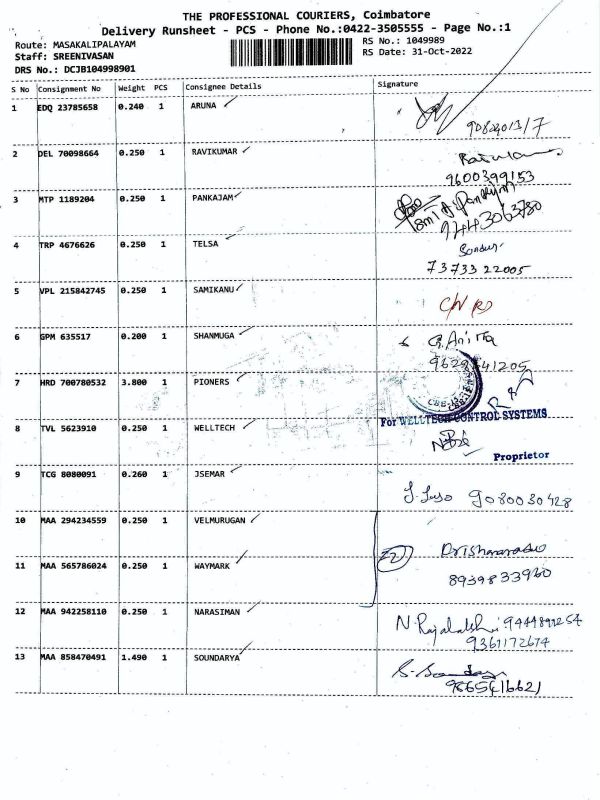 THE PROFESSIONAL COURIERS, Coimbatore
Delivery Runsheet - PCS - Phone No.:0422-3505555 - Page No.:1
Route: MASAKALIPALAYAM
RS No.: 1049989
Staff: SREENIVASAN
RS Date: 31-Oct-2022
DRS No.: DCJB104998901
S No Consignment No Weight PCS Consignee Details Signature
1 EDQ 23785658 0.240 1 ARUNA
2 DEL 70098664 0.250 1 RAVIKUMAR
9600399153
3 MTP 1189204 0.250 1 PANKAJAM
4 TRP 4676626 0.250 1 TELSA
73733 22005
5 VPL 215842745 0.250 1 SAMIKANU
6 GPM 635517 0.200 1 SHANMUGA
7 HRD 700780532 3.800 1 PIONERS
For WELLTECH CONTROL SYSTEMS
8 TVL 5623910 0.250 1 WELLTECH
Proprietor
9 TCG 8080091 0.260 1 JSEMAR
9080030428
10 MAA 294234559 0.250 1 VELMURUGAN
11 MAA 565786024 0.250 1 WAYMARK
8939833960
12 MAA 942258110 0.250 1 NARASIMAN
9361172674
13 MAA 858470491 1.490 1 SOUNDARYA